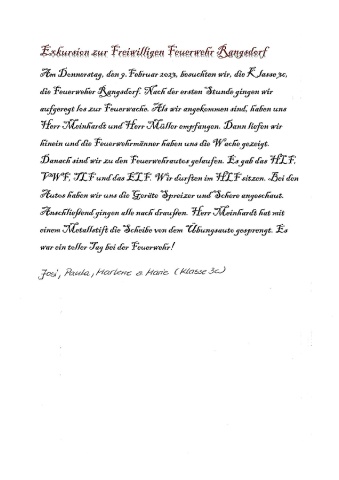 Exkursion zur Freiwilligen Feuerwehr Rangsdorf
Am Donnerstag, den 9. Februar 2023, besuchten wir, die Klasse 3c,
die Feuerweher Rangsdorf. Nach der ersten Stunde gingen wir
aufgeregt los zur Feuerwache. Als wir angekommen sind, haben uns
Herr Meinhardt und Herr Müller empfangen. Dann liefen wir
hinein und die Feuerwehrmänner haben uns die Wache gezeigt.
Danach sind wir zu den Feuerwehrautos gelaufen. Es gab das HLF,
VWF, TLF und das ELF. Wir durften im HLF sitzen. Bei den
Autos haben wir uns die Geräte Spreizer und Schere angeschaut.
Anschließend gingen alle nach draußen. Herr Meinhardt hat mit
einem Metallstift die Scheibe von dem Übungsauto gesprengt. Es
war ein toller Tag bei der Feuerwehr!
Josi, Paula, Marlene & Marie (Klasse 3c)